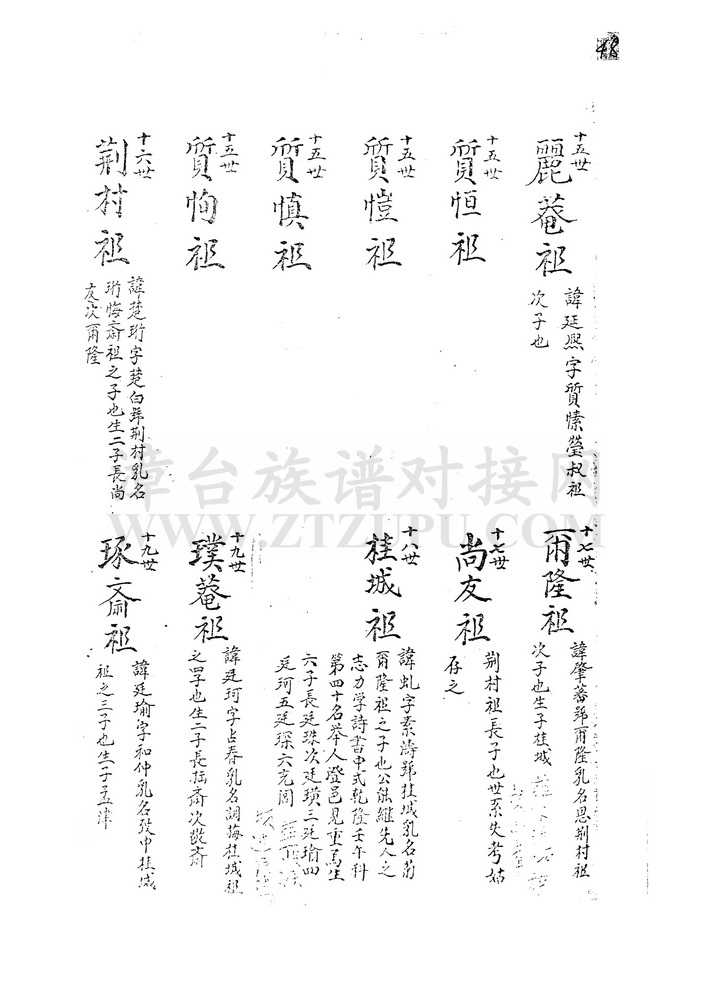 十五世
麗菴祖
諱延熙字質愫瑩叔祖
次子也
十五世
質恒祖
十五世
質愷祖
十五世
質慎祖
十五世
質恂祖
十六世
荆村祖
諱楚珩字楚白號荆村乳名
珩悔齋祖之子也生二子長尚
友次爾隆
十七世
爾隆祖
諱肇蕃號爾隆乳名思荆村祖
次子也生子桂城
十七世
尚友祖
荆村祖長子也世系失考姑
存之
十八世
桂城祖
諱虬字素濤號桂城乳名
爾隆祖之子也公能繼先人之
志力学詩書中式乾隆壬午科
第四十名举人澄邑見重焉生
六子長廷珠次廷璜三廷瑜四
廷珂五廷琛六克岡
十九世
璞菴祖
諱廷珂字占春乳名詞桂城祖
之四子也生二子長 齋次 齋
十九世
琢齋祖
諱廷瑜字和仲乳名 中桂城
祖之三子也生子孟津
章台族谱对接网
WWW.ZTZUPU.COM